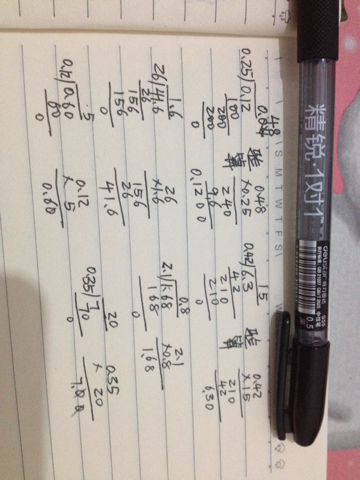 S M T W T F S
0.48
0.25)0.12
100
200
200
0
验算
0.48
×0.25
240
96
0.1200
15
0.42)6.3
42
210
210
0
验算
0.42
×15
210
42
6.30
1.6
26)41.6
26
156
156
0
26
×1.6
156
26
41.6
0.8
2.1)1.68
168
0
2.1
×0.8
1.68
5
0.12)0.60
60
0
0.12
×5
0.60
20
0.35)7
70
0
0.35
×20
7.00
精锐1对1
0.5